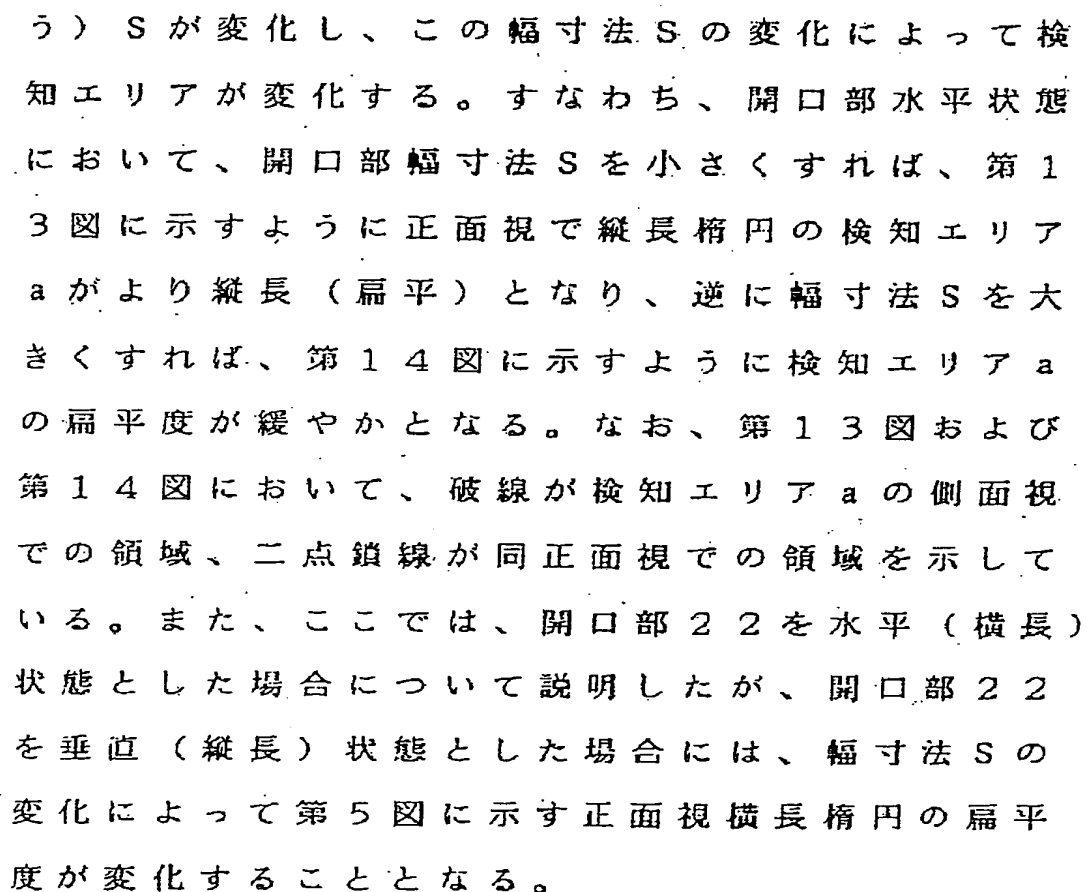 う）Ｓが変化し、この幅寸法Ｓの変化によって検
知エリアが変化する。すなわち、開口部水平状態
において、開口部幅寸法Ｓを小さくすれば、第１
３図に示すように正面視で縦長楕円の検知エリア
ａがより縦長（扁平）となり、逆に幅寸法Ｓを大
きくすれば、第１４図に示すように検知エリアａ
の扁平度が緩やかとなる。なお、第１３図および
第１４図において、破線が検知エリアａの側面視
での領域、二点鎖線が同正面視での領域を示して
いる。また、ここでは、開口部２２を水平（横長）
状態とした場合について説明したが、開口部２２
を垂直（縦長）状態とした場合には、幅寸法Ｓの
変化によって第５図に示す正面視横長楕円の扁平
度が変化することとなる。